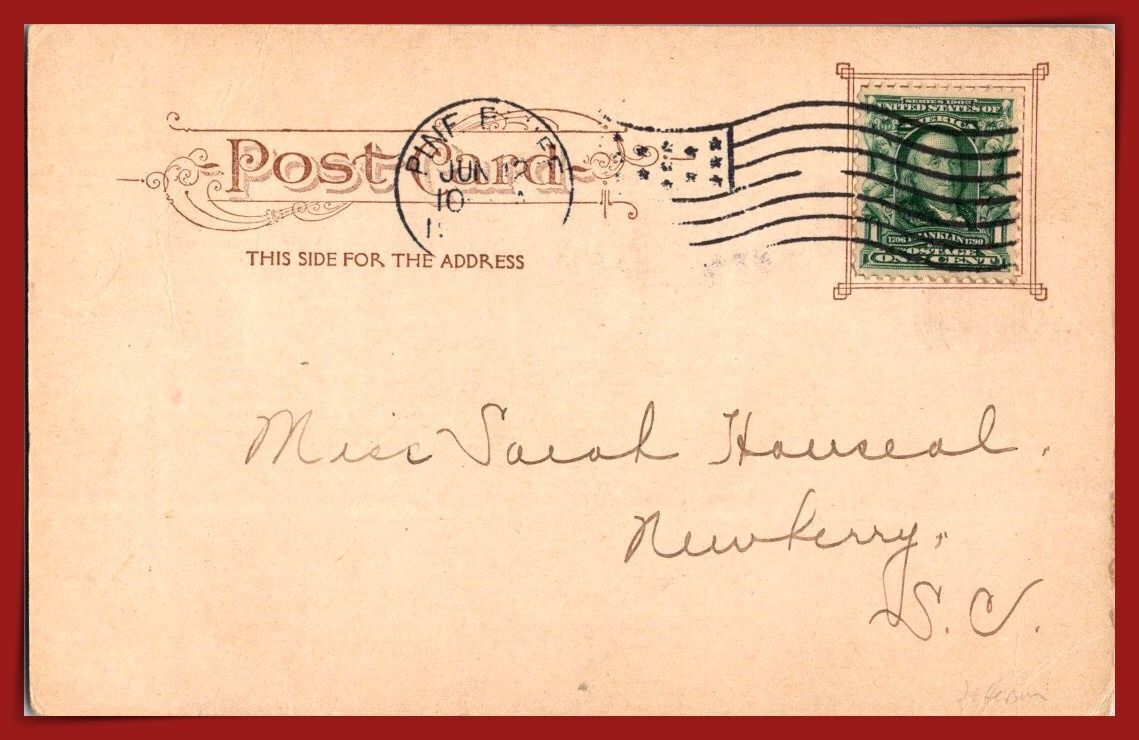 Post Card
THIS SIDE FOR THE ADDRESS
PINE
JUN 12
10
SERIES 1902
UNITED STATES OF
AMERICA
1706 FRANKLIN 1790
POSTAGE
ONE CENT
Miss Sarah Houseal.
Newberry,
S.C.